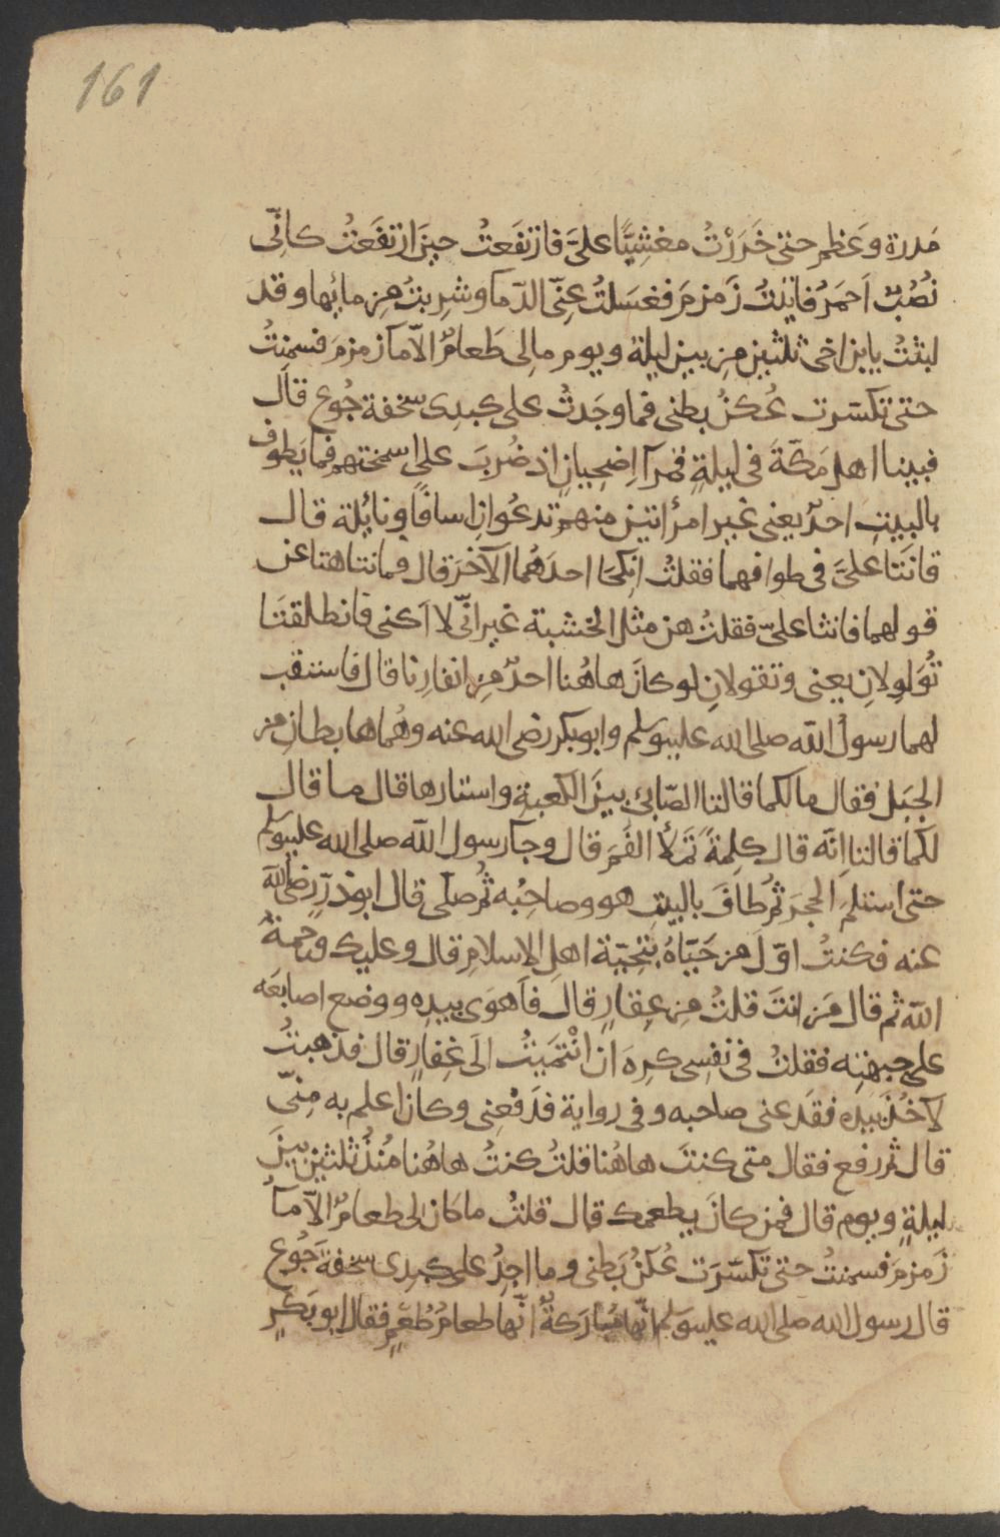 161
مدرة وعظم حتى خَرَرْتُ مغشِيًّا علىَّ فارتفَعتُ حينَ ارتفَعتُ كانّى
نُصُبٌ احمَرُ فاتيْتُ زَمزمَ فغسَلتُ عنّى الدّمآ وشرِبتُ مِن مائها وقد
لبثتُ يابن اخى ثلثين مِن بين ليلة ويوم مالِى طَعامٌ الّا مآ زمزمَ فسمِنتُ
حتى تكسّرت عُكنُ بطنى فما وجَدتُ على كبدِى سخفة جُوع قال
فبينا اهل مَكّةَ فى ليلةٍ قمرآ اِضحِيانٍ اذ ضُرِبَ على اسمختهم فما يَطوف
بالبيتِ احدٌ يعنى غير امرأتين منهم تدعُوانِ اسافًا ونائلة قال
فاتَتا علىَّ فى طوافهما فقلتُ انكِحَا احدَهُما الآخرَ قال فمانتاهتا عن
قولهما فاتتا علىّ فقلتُ هن مثل الخشبة غير انّى لا اَكنى فانطلقتا
تُوَلوِلانِ يعنى وتقولانِ لو كانَ هاهُنا احدٌ مِن انفارِنا قال فاستقب
لهما رسولُ الله صلى الله عليه وسلم وابو بكر رضى الله عنه وهُما هابطانِ من
الجبَل فقال مالكما قالتا الصّابئ بينَ الكعبةِ واستارها قال ما قال
لكما قالتا اِنّه قال كلِمةً تَملأُ الفَمَ قال وجآ رسول الله صلى الله عليه وسلم
حتى استلمَ الحجرَ ثمّ طافَ بالبيتِ هو وصاحِبُه ثُم صلّى قال ابوذرٍّ رضى الله
عنه فكنتُ اوّلَ من حَيّاهُ بتحِيّة اهلِ الاسلامِ قال وعليك ورحمةُ
الله ثم قال مَن انتَ قلتُ مِن غِفارٍ قالَ فاَهوَى بيدِه ووضع اصابعَه
على جبهتِه فقلتُ فى نفسِى كرِهَ اَن انْتَمَيتُ الَى غِفارٍ قال فذهبتُ
لآخُذَ بيدِه فقدعنى صاحبه وفى رواية فدَفعنى وكان اعلم به مِنّى
قال ثم رفع فقال متى كنتَ هاهُنا قلتُ كنتُ هاهُنا مُنذُ ثلثين بينَ
ليلةٍ ويوم قال فمن كانَ يطعمك قال قلتُ ما كان لى طعامٌ الّا مآ
زَمزمَ فسمنتُ حتى تكسّرَت عُكنُ بَطنى وما اجِدُ على كبِدِى سخفةَ جُوع
قال رسول الله صلى الله عليه وسلم انّها مُبارَكةٌ انّها طعامُ طُعمٍ فقال ابو بَكرٍ